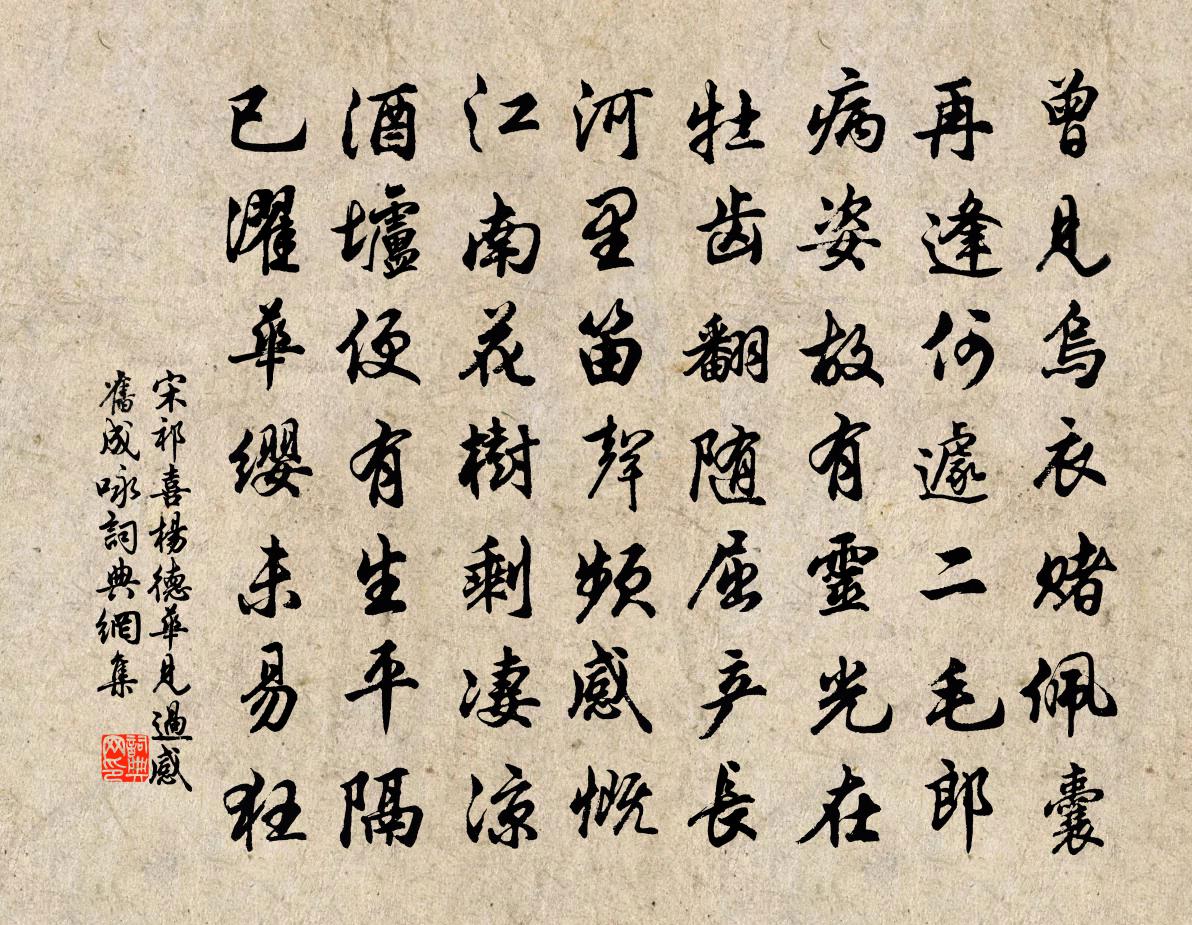 曾見烏衣賭佩囊
再逢何遽二毛郎
病姿故有靈光在
牡齿翻随屈产長
河里笛聲頻感慨
江南花樹剩凄凉
酒壚便有生平隔
已濯華缨未易狂
宋祁喜楊德華見過感
舊成咏詞典網集
詞典
网印